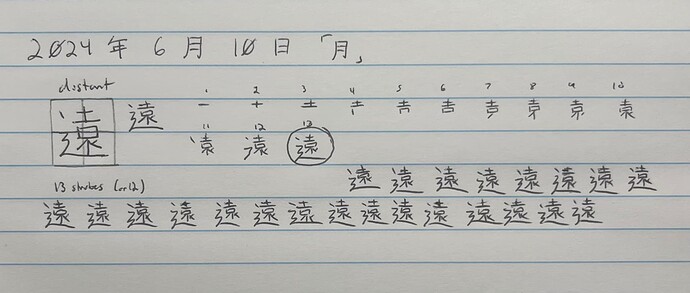 2024年6月10日「月」
distant
遠 遠 1 2 3 4 5 6 7 8 9 10
一 十 土
11 12 13
遠 遠 遠
遠 遠 遠 遠 遠 遠 遠 遠
13 strokes (or 12)
遠 遠 遠 遠 遠 遠 遠 遠 遠 遠 遠 遠 遠 遠 遠